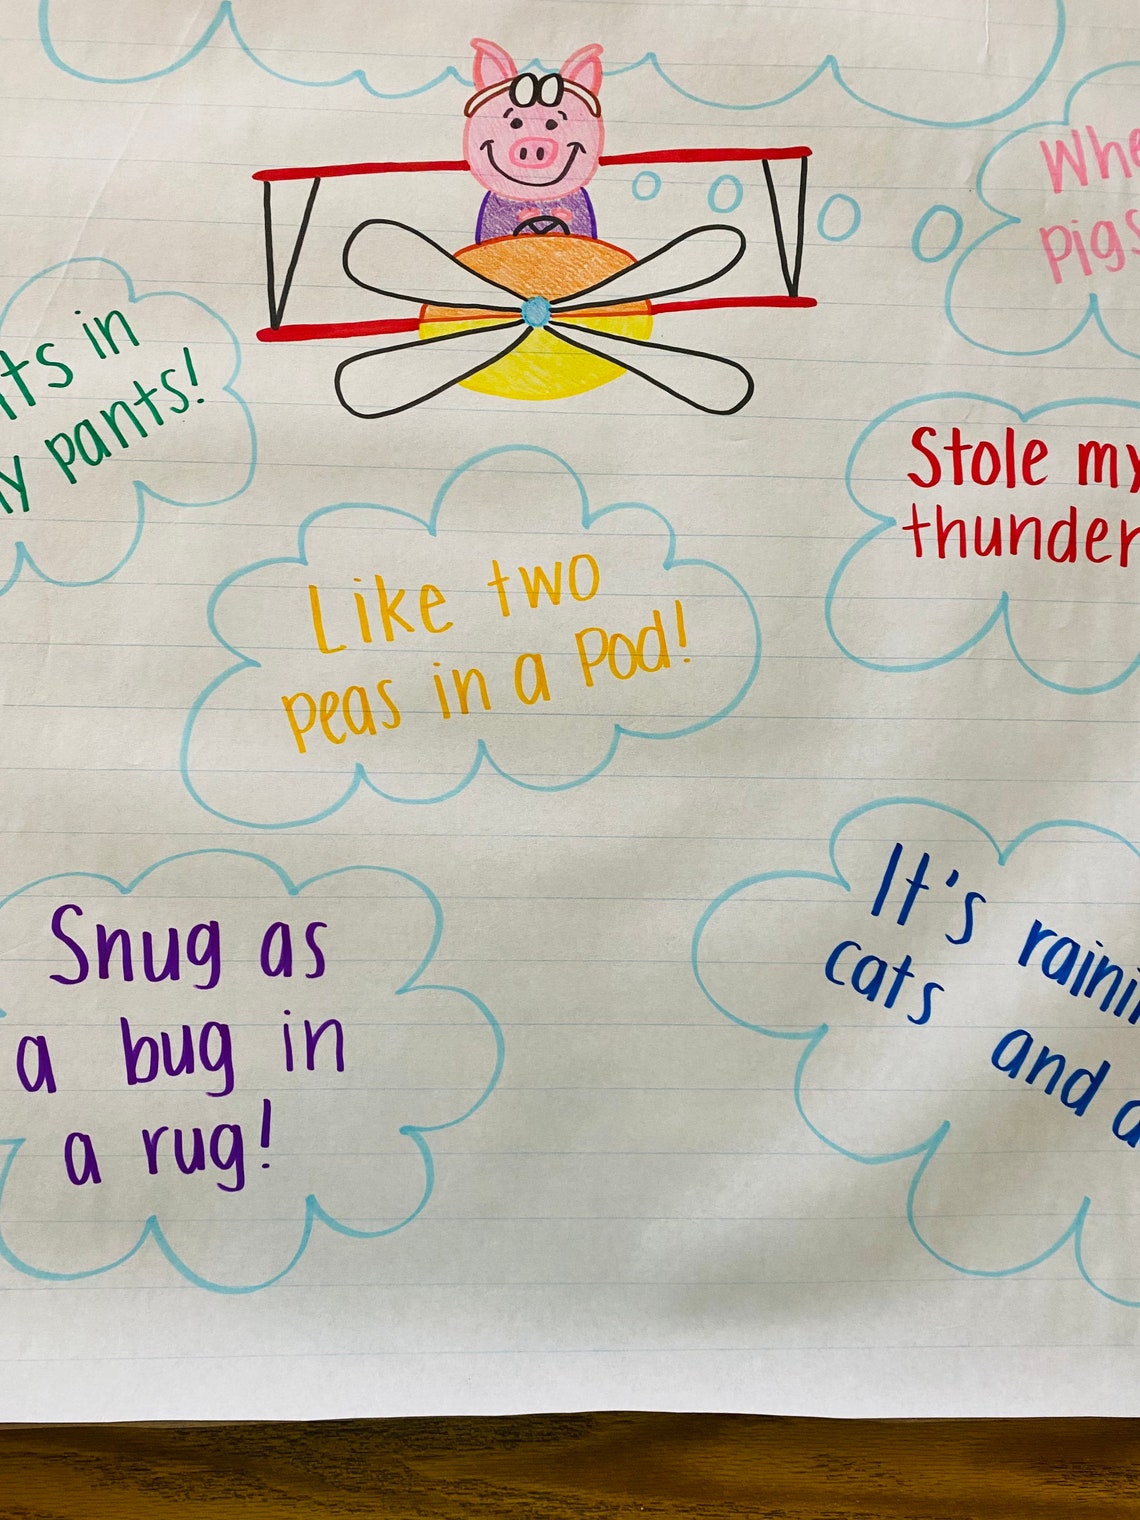 pigs
in
pants!
Stole my
thunder
Like two
peas in a Pod!
Snug as
a bug in
a rug!
It's
cats and